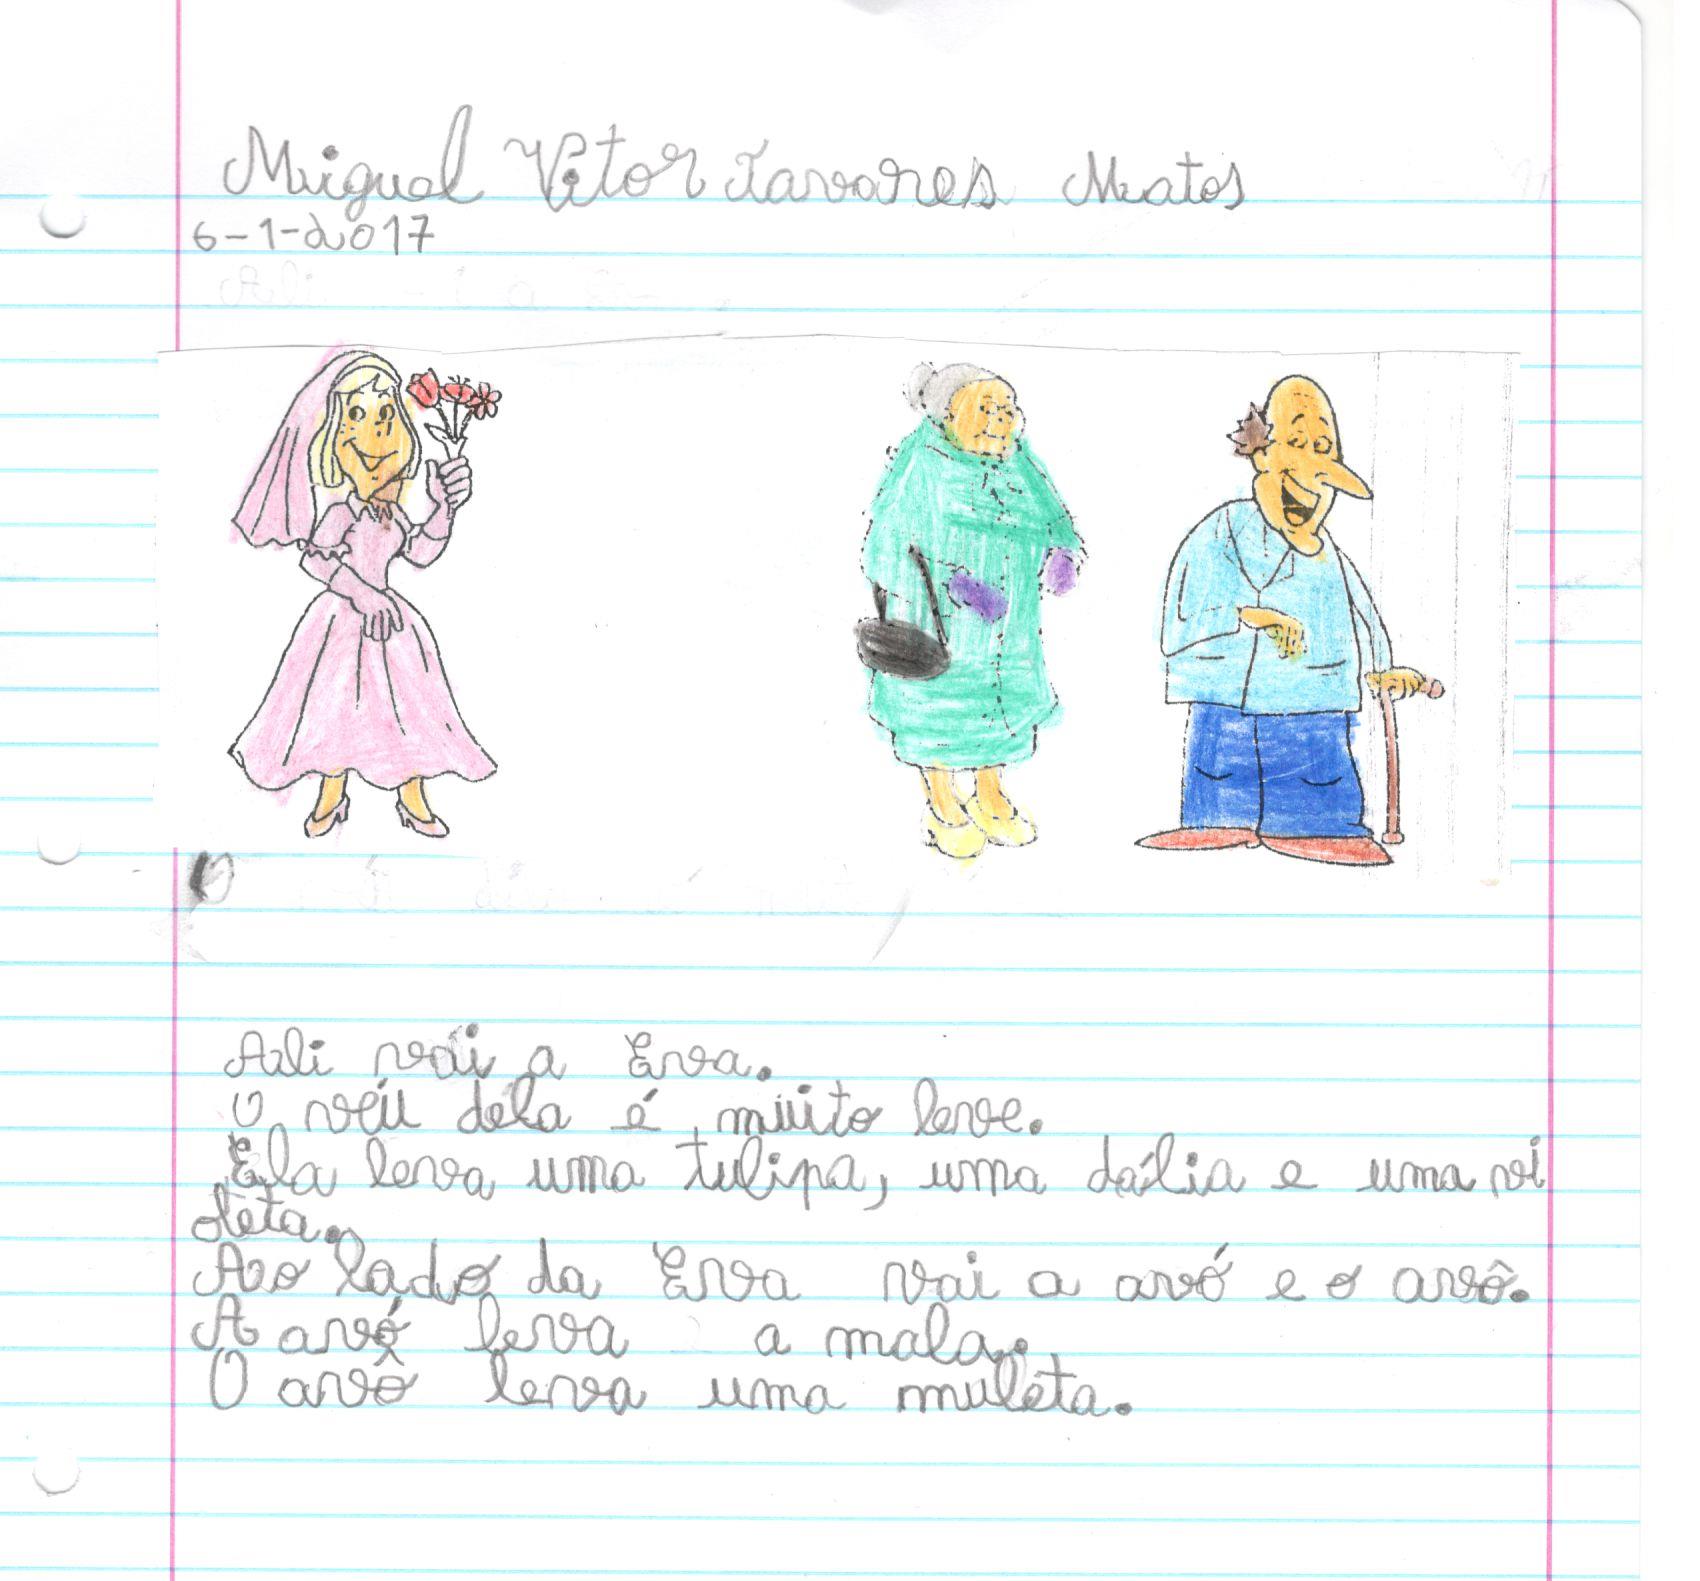 Miguel Vitor Tavares Matos
6-1-2017
Ali vai a Eva.
O véu dela é muito leve.
Ela leva uma tulipa, uma dália e uma vi
oleta.
Ao lado da Eva vai a avó e o avô.
A avó leva a mala.
O avô leva uma muleta.